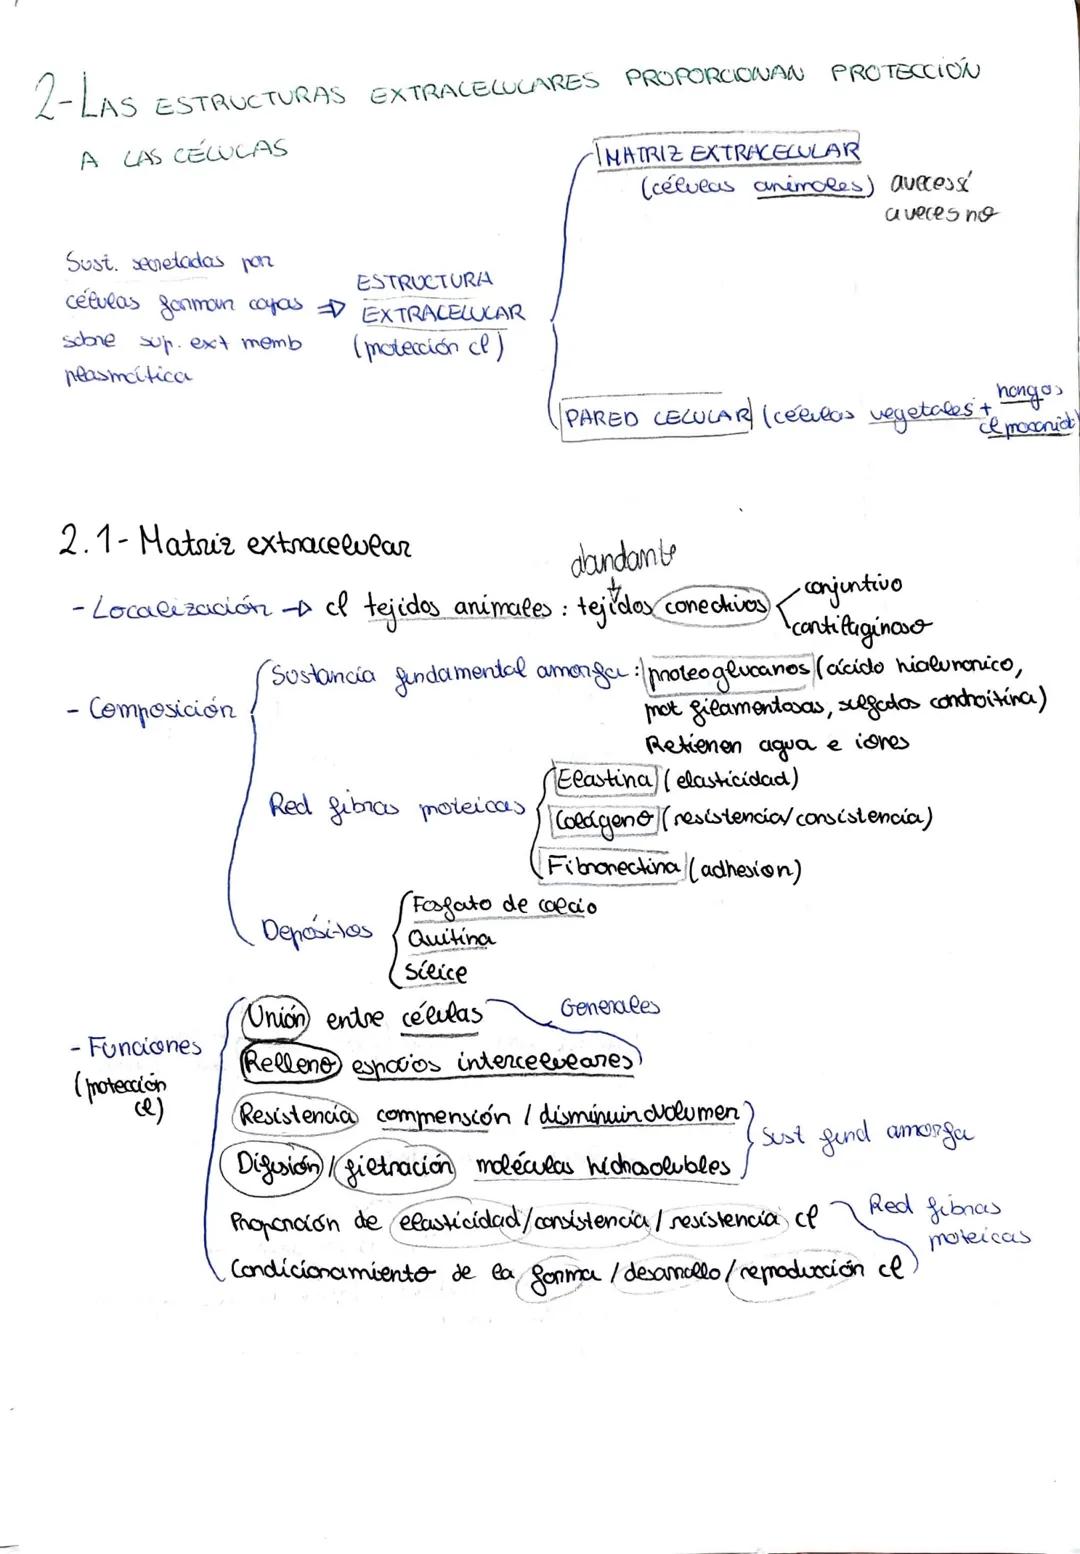 2-LAS ESTRUCTURAS EXTRACELULARES PROPORCIONAN PROTECCIÓN
A LAS CÉLULAS
MATRIZ EXTRACELULAR
(células animales) a veces sí
a veces no
Sust. secretadas por
células forman capas ⇒
sobre sup. ext memb
plasmática
ESTRUCTURA
EXTRACELULAR
(protección cl)
PARED CELULAR (células vegetales + hongos
cl procariot)
2.1- Matriz extracelular
abundante
- Localización → cl tejidos animales : tejidos conectivos
conjuntivo
cartilaginoso
- Composición
Sustancia fundamental amorfa: proteoglucanos (ácido hialuronico,
prot filamentosas, sulfatos condroitina)
Retienen agua e iones
Red fibras proteicas
Elastina (elasticidad)
Colágeno (resistencia/consistencia)
Fibronectina (adhesion)
Depósitos
Fosfato de calcio
Quitina
Sílice
- Funciones
(protección
cl)
Unión entre células
Relleno espacios intercelulares
Generales
Resistencia compresión / disminuir volumen
Difusión / filtración moléculas hidrosolubles
Sust fund amorfa
Proporción de elasticidad/consistencia/resistencia cl
Condicionamiento de la forma / desarrollo / reproducción cl
Red fibras
proteicas